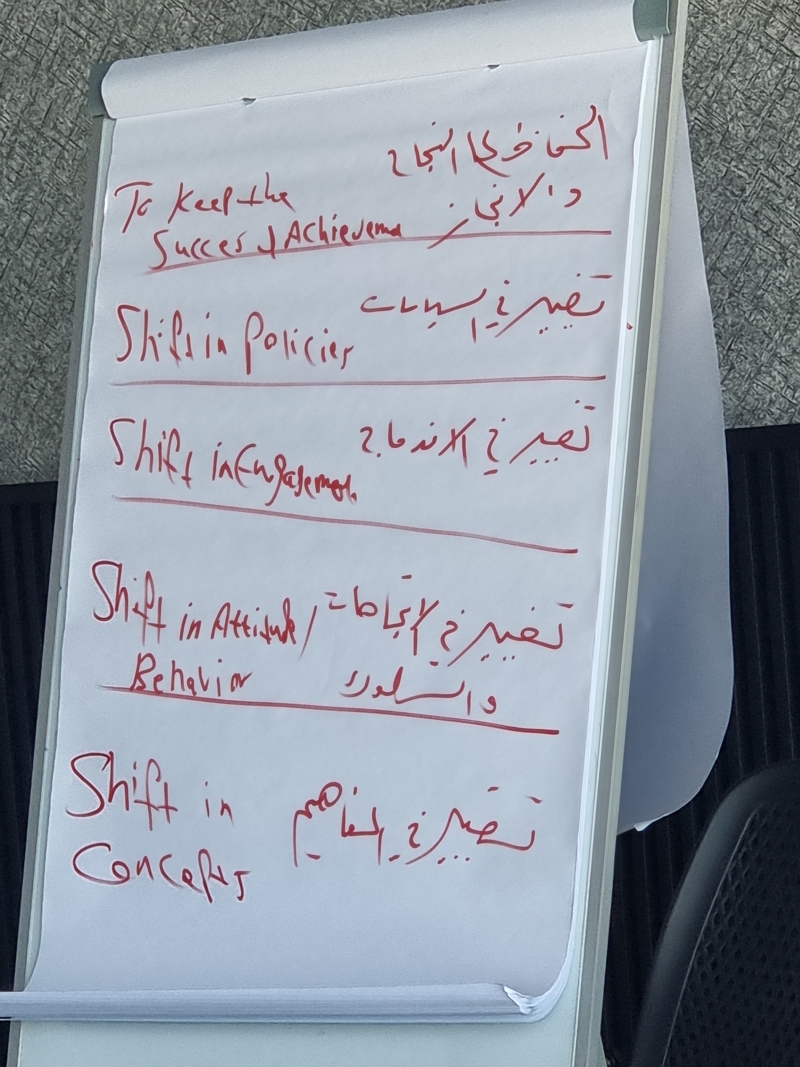 الحفاظ على النجاح
والانجاز
To Keep the
Succes & Achievema
Shift in Policies
تغيير في السياسات
Shift in Engagement
تغيير في الاندماج
Shift in Attitude/
Behavior
تغيير في الاتجاهات
والسلوك
Shift in
Concepts
تغيير في المفاهيم